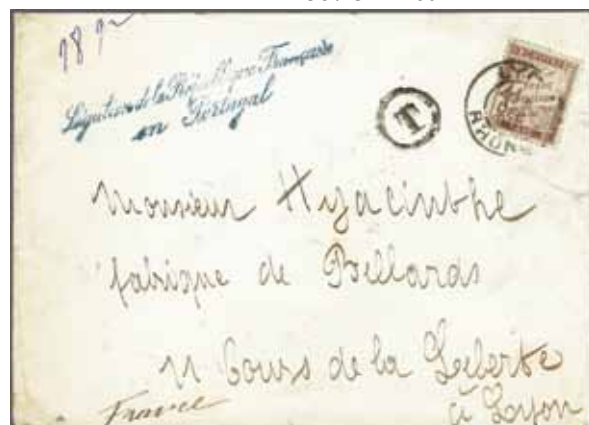 Légation de la République Française
en Portugal
T
RHÔNE
Monsieur Hyacinthe
fabrique de Billards
11 Cours de la Liberte
à Lyon
France